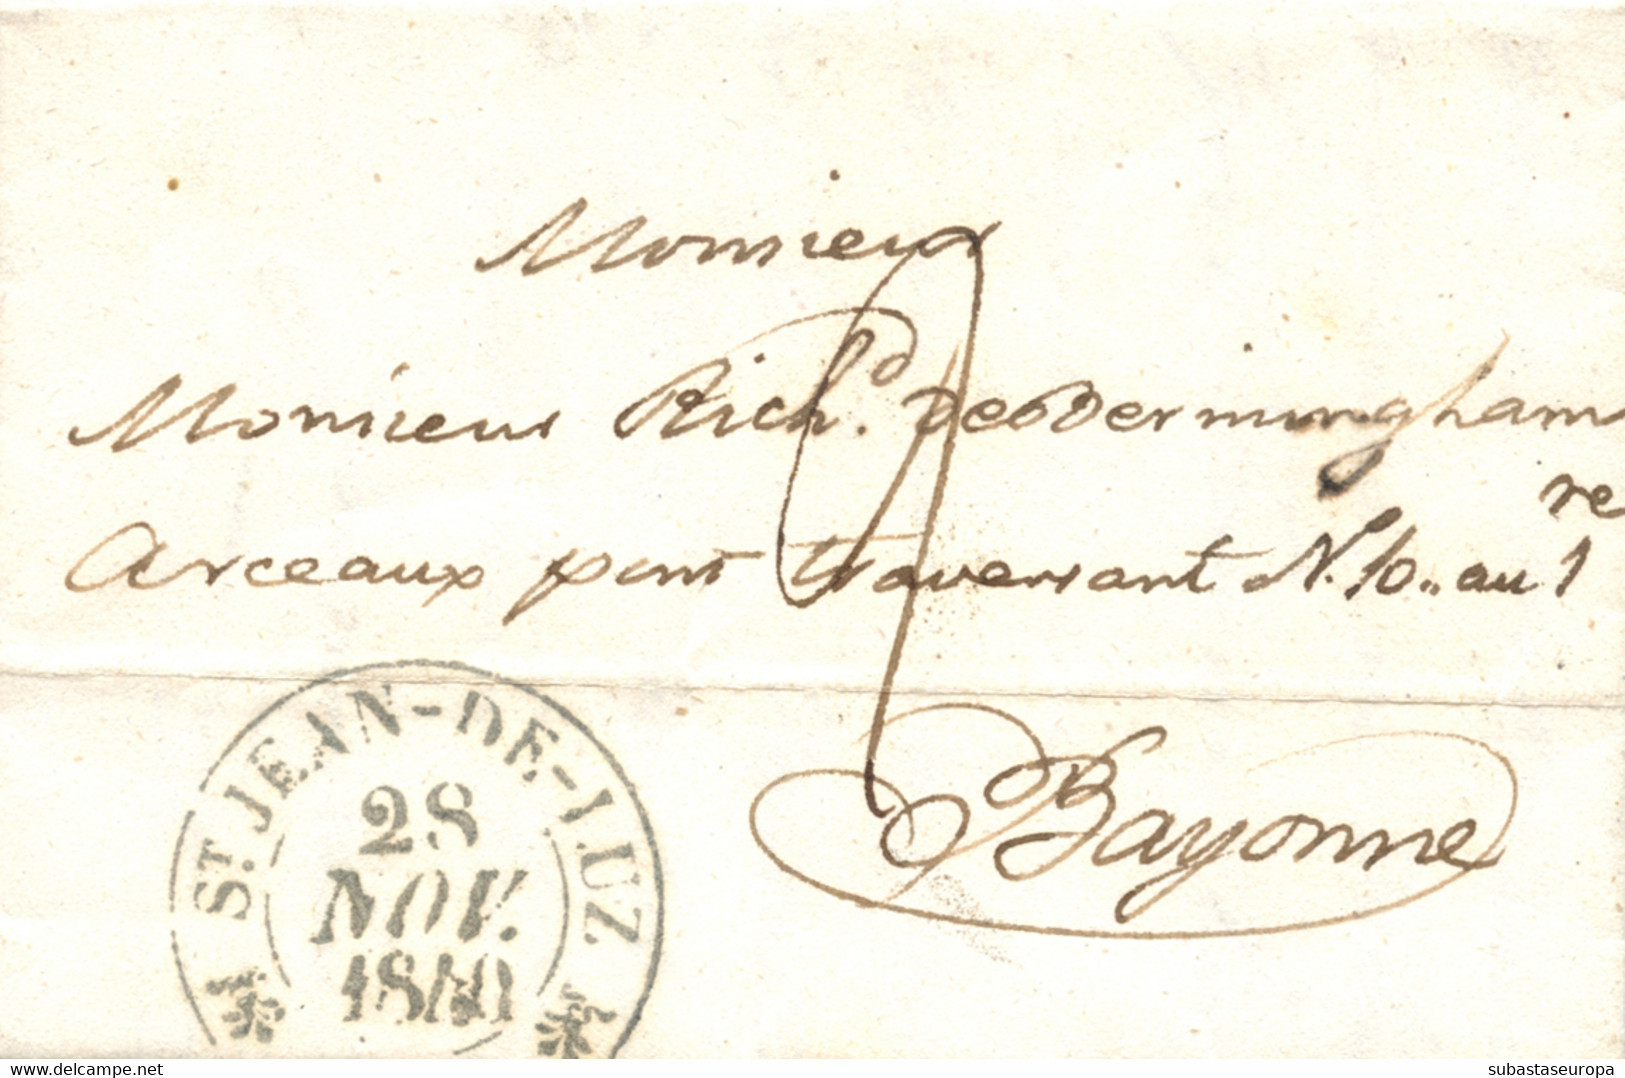 Monsieur
Monsieur Rich.d de Bermingham
Arceaux pont traversant N. 10.. au 1re
Bayonne
ST. JEAN-DE-LUZ
28
NOV.
1840
www.delcampe.net
subastaseuropa